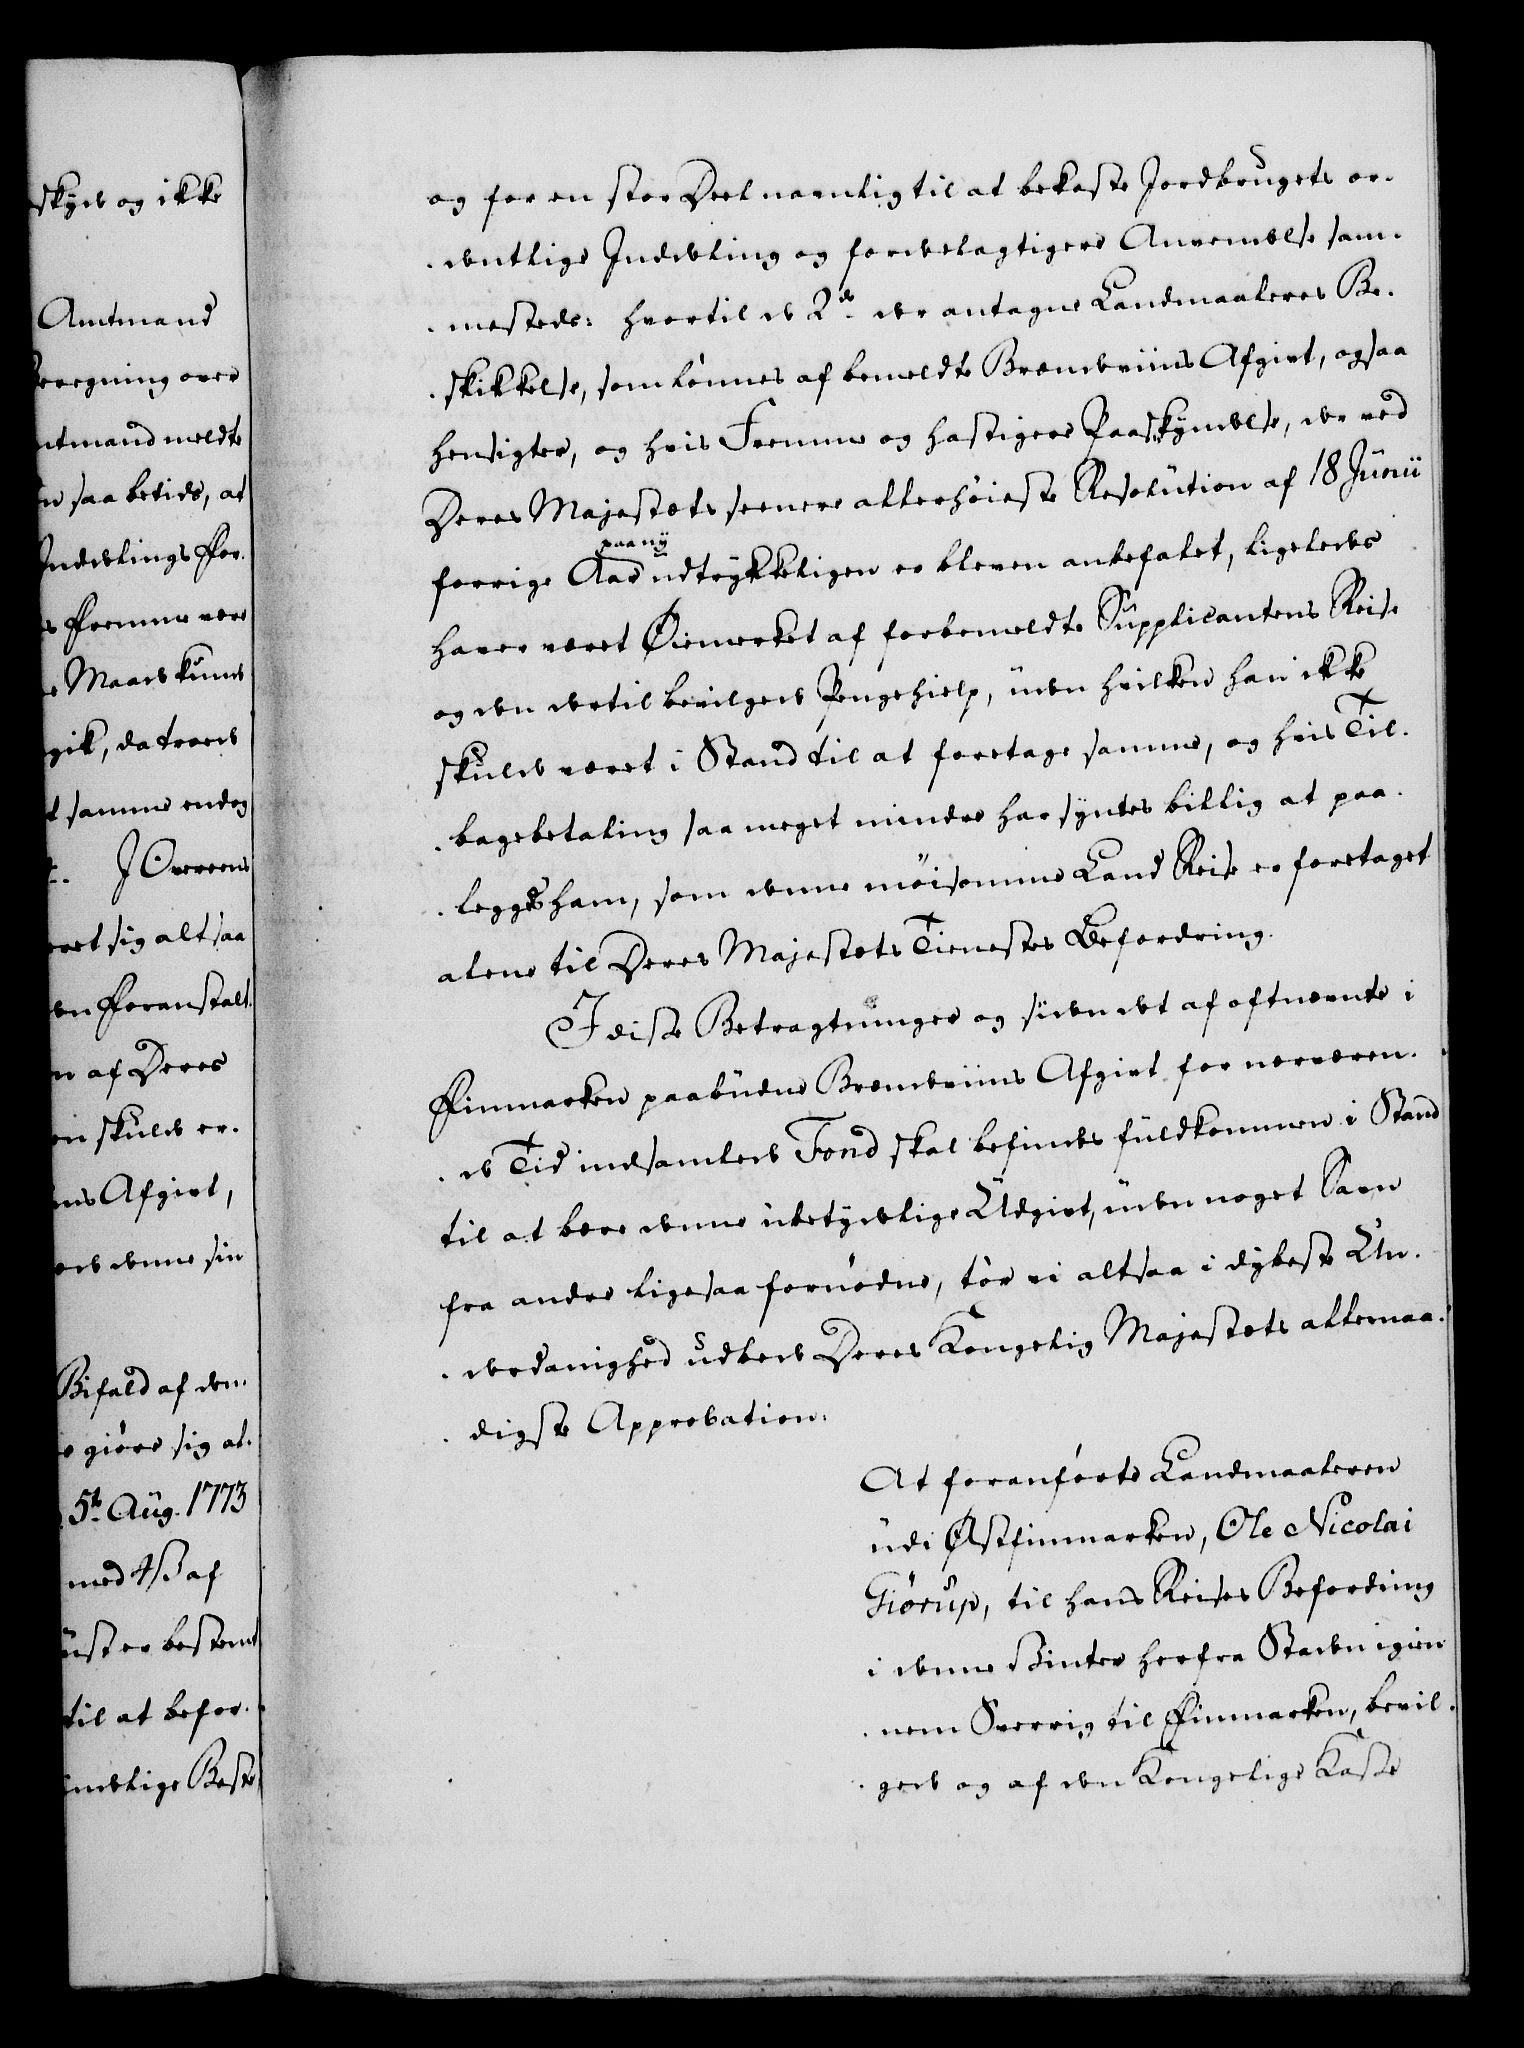 skyld og ikke
Amtmand
beregning over
mtmand meldte
n saa betids, at
Inddelings For-
s Fremme være
e Maade kunde
gik, da troede
t samme endog
I Overeens
eret sig altsaa
den Foranstalt-
n af Deres
en skulde er-
ns Afgivt,
ede denne sin
Bifald af den
e giøre sig al-
5te Aug. 1773
med 4 ß af
ust er bestemt
til at befor-
indelige Beste
og for en stor Deel navnlig til at bekoste Jordbrugets or-
dentlige Inddeling og fordelagtigere Anvendelse sam-
mesteds: hvortil de 2de der antagne Landmaaleres Be-
skikkelse, som lønnes af bemeldte Brændeviins Afgivt, ogsaa
hensigter, og hvis Fremme og hastigere Paaskyndelse, der ved
Deres Majestæts seenere allerhøieste Resolution af 18 Junii
forrige Aar paa ny udtrykkeligen er bleven anbefalet, ligeledes
haver været Øiemerket af forbemeldte Supplicantens Reise
og den dertil bevilgede Pengehielp, uden hvilken han ikke
skulde været i Stand til at foretage samme, og hvis Til-
bagebetaling saa meget mindre har syntes billig at paa-
legges ham, som denne møisomme Land Reise er foretaget
alene til Deres Majestæts Tienestes Befordring.
I disse Betragtninger og siden det af oftnævnte i
Finmarken paabudne Brændeviins Afgivt for nærværen-
de Tid indsamlede Fond skal befindes fuldkommen i Stand
til at bære denne ubetydelige Udgivt, uden noget Savn
fra andre ligesaa fornødne, tør vi altsaa i dybeste Un-
derdanighed udbede Deres Kongelig Majestæts allernaa-
digste Approbation:
At foranførte Landmaaleren
udi Østfinmarken, Ole Nicolai
Giørup, til hans Reises Befording
i denne Vinter herfra Staden igien-
nem Sverrig til Finmarken, bevil-
gede og af den Kongelige Kasse